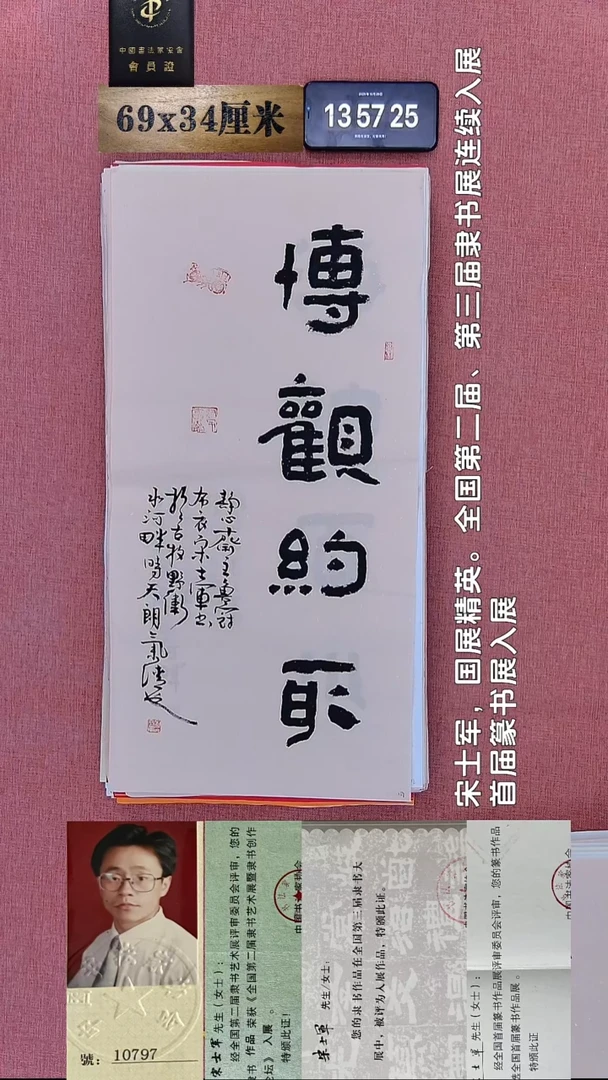 中國書法家協會
會員證
69x34厘米
13 57 25
博觀約取
靜心齋主魯辭
布衣宋士軍書
於古牧野衛
水河畔時天朗氣清也
宋士军，国展精英。全国第二届、第三届隶书展连续入展
首届篆书展入展
10797
宋士军 先生（女士）：
经全国第二届隶书艺术展评审委员会评审，您的
隶书 作品 荣获《全国第二届隶书艺术展暨隶书创作
论坛》入展 。
特颁此证！
宋士军 先生/女士：
您的隶书作品在全国第三届隶书大
展中，被评为入展作品，特颁此证。
士军 先生（女士）：
经全国首届篆书作品展评审委员会评审，您的篆书作品
选全国首届篆书作品展。
特颁此证